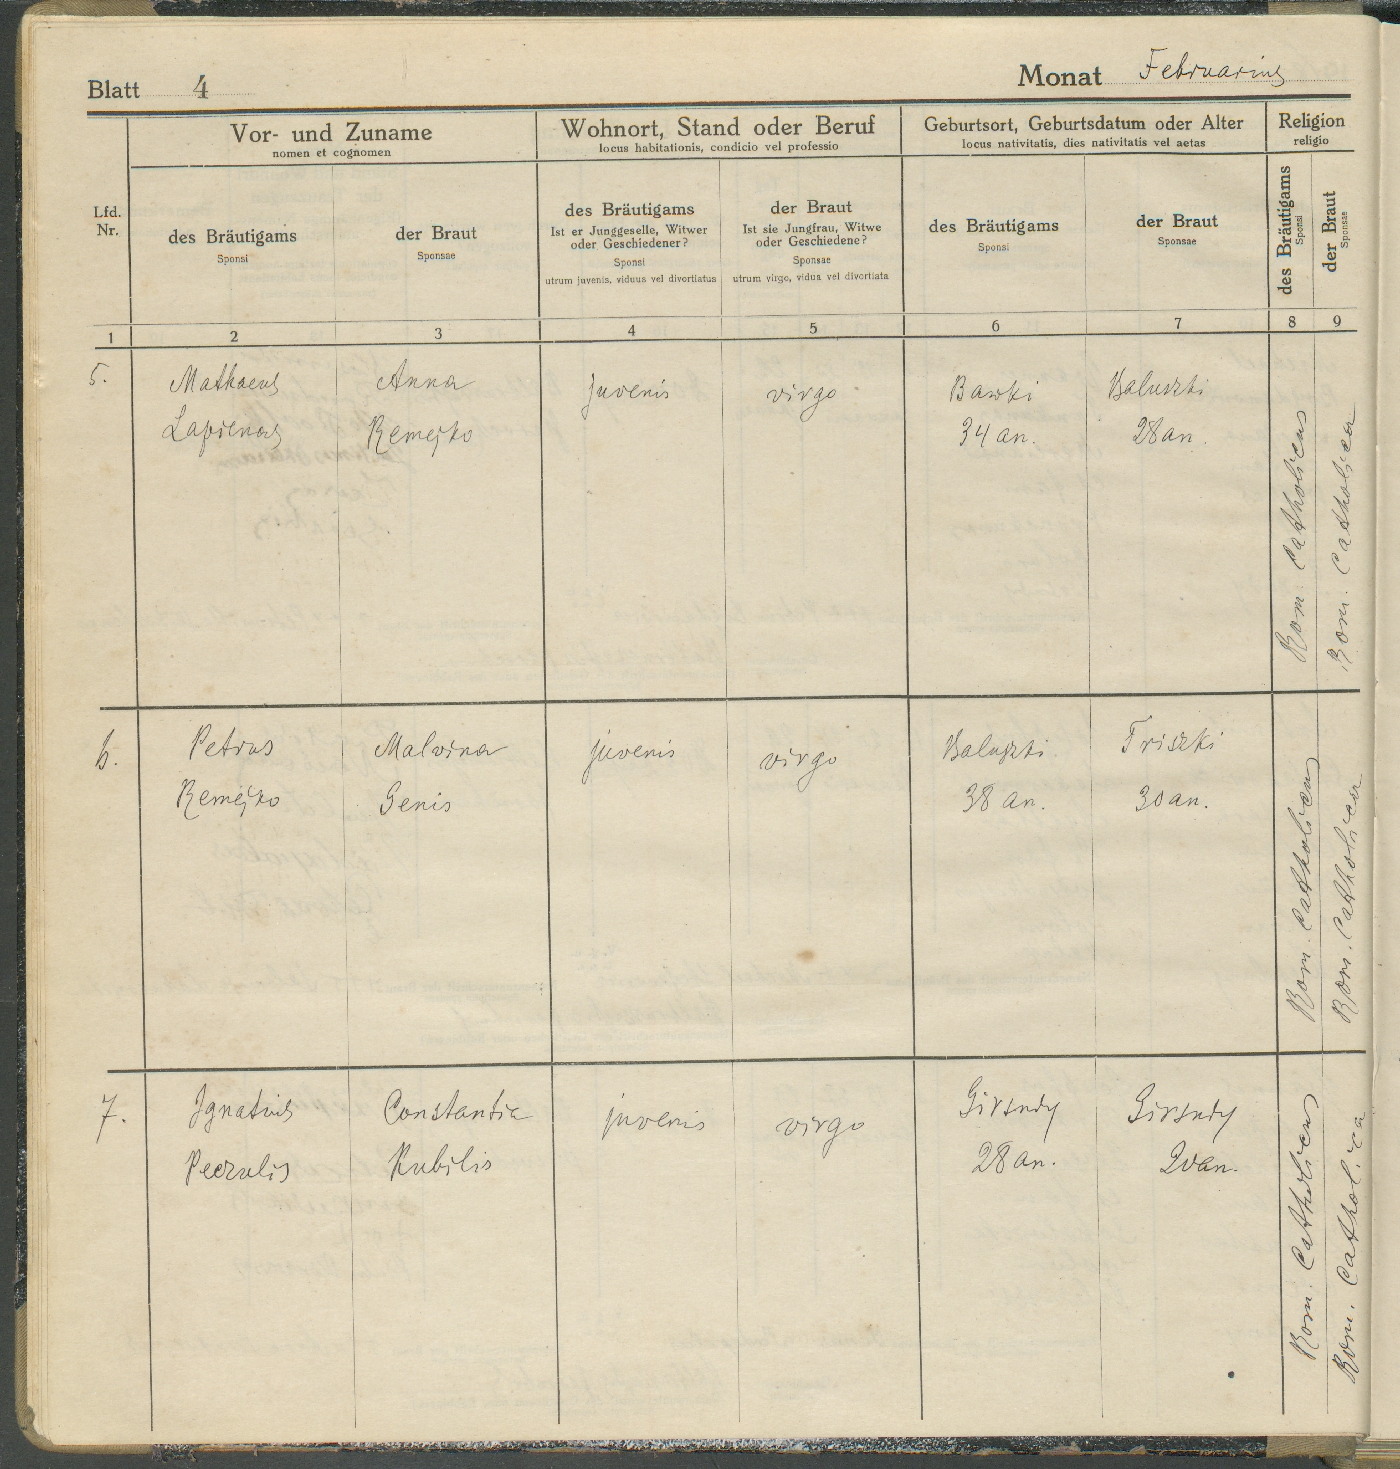 Blatt 4
Monat Februarius
Vor- und Zuname
nomen et cognomen
Wohnort, Stand oder Beruf
locus habitationis, condicio vel professio
Geburtsort, Geburtsdatum oder Alter
locus nativitatis, dies nativitatis vel aetas
Religion
religio
Lfd.
Nr.
des Bräutigams
Sponsi
der Braut
Sponsae
des Bräutigams
Ist er Junggeselle, Witwer
oder Geschiedener?
Sponsi
utrum juvenis, viduus vel divortiatus
der Braut
Ist sie Jungfrau, Witwe
oder Geschiedene?
Sponsae
utrum virgo, vidua vel divortiata
des Bräutigams
Sponsi
der Braut
Sponsae
des Bräutigams
Sponsi
der Braut
Sponsae
1 2 3 4 5 6 7 8 9
5. Mathaeus Anna juvenis virgo Bawki Baluszki
Lapienas Remejko 34 an. 28 an.
Rom. Catholicus
Rom. Catholica
6. Petrus Malvina juvenis virgo Baluszki Triszki
Remejko Genis 38 an. 30 an.
Rom. Catholicus
Rom. Catholica
7. Ignatius Constantia juvenis virgo Girsudy Girsudy
Peczulis Kubilis 28 an. 20 an.
Rom. Catholicus
Rom. Catholica